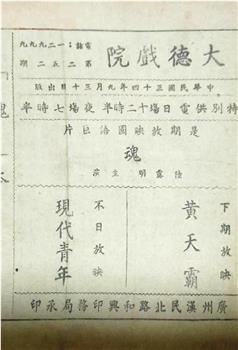 大德戲院
電話:一二九九九
第二五二期
中華民國三十四年九月十三日出版
特別供電日場十二時半夜場七時半
是期放映國語巨片
魂
陸露明主演
下期放映
黃天霸
不日放映
現代青年
廣州漢民北路和興印務局承印